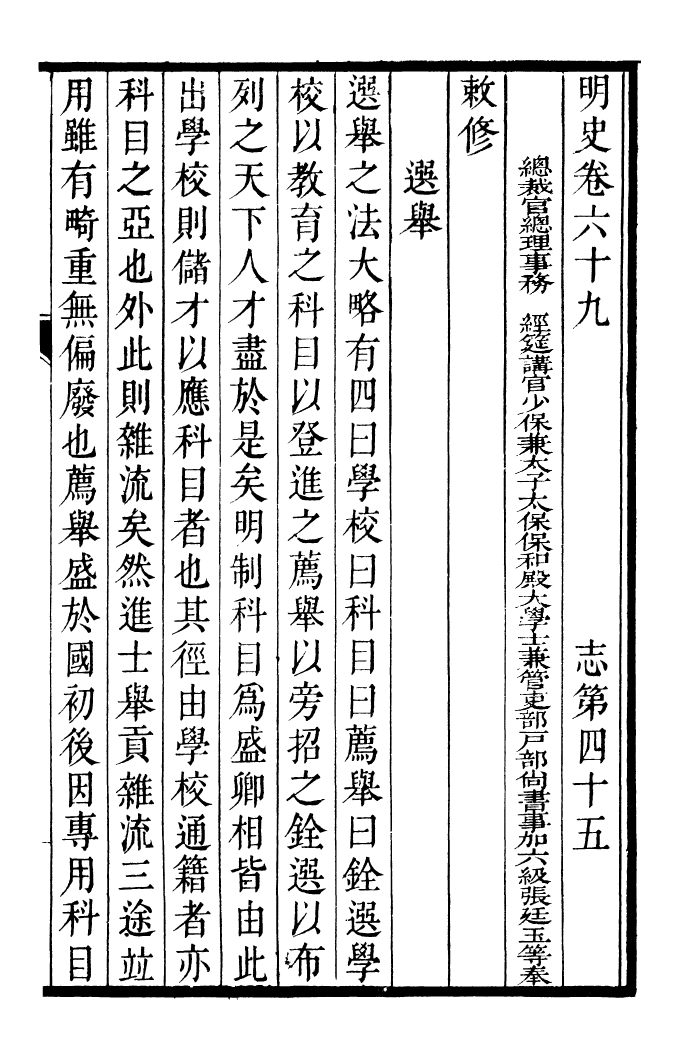 明史卷六十九　志第四十五
總裁官總理事務　經筵講官少保兼太子太保保和殿大學士兼管吏部戸部尙書事加六級張廷玉等奉
敕修
選舉
選舉之法大略有四曰學校曰科目曰薦舉曰銓選學
校以教育之科目以登進之薦舉以旁招之銓選以布
列之天下人才盡於是矣明制科目爲盛卿相皆由此
出學校則儲才以應科目者也其徑由學校通籍者亦
科目之亞也外此則雜流矣然進士舉貢雜流三途竝
用雖有畸重無偏廢也薦舉盛於國初後因專用科目